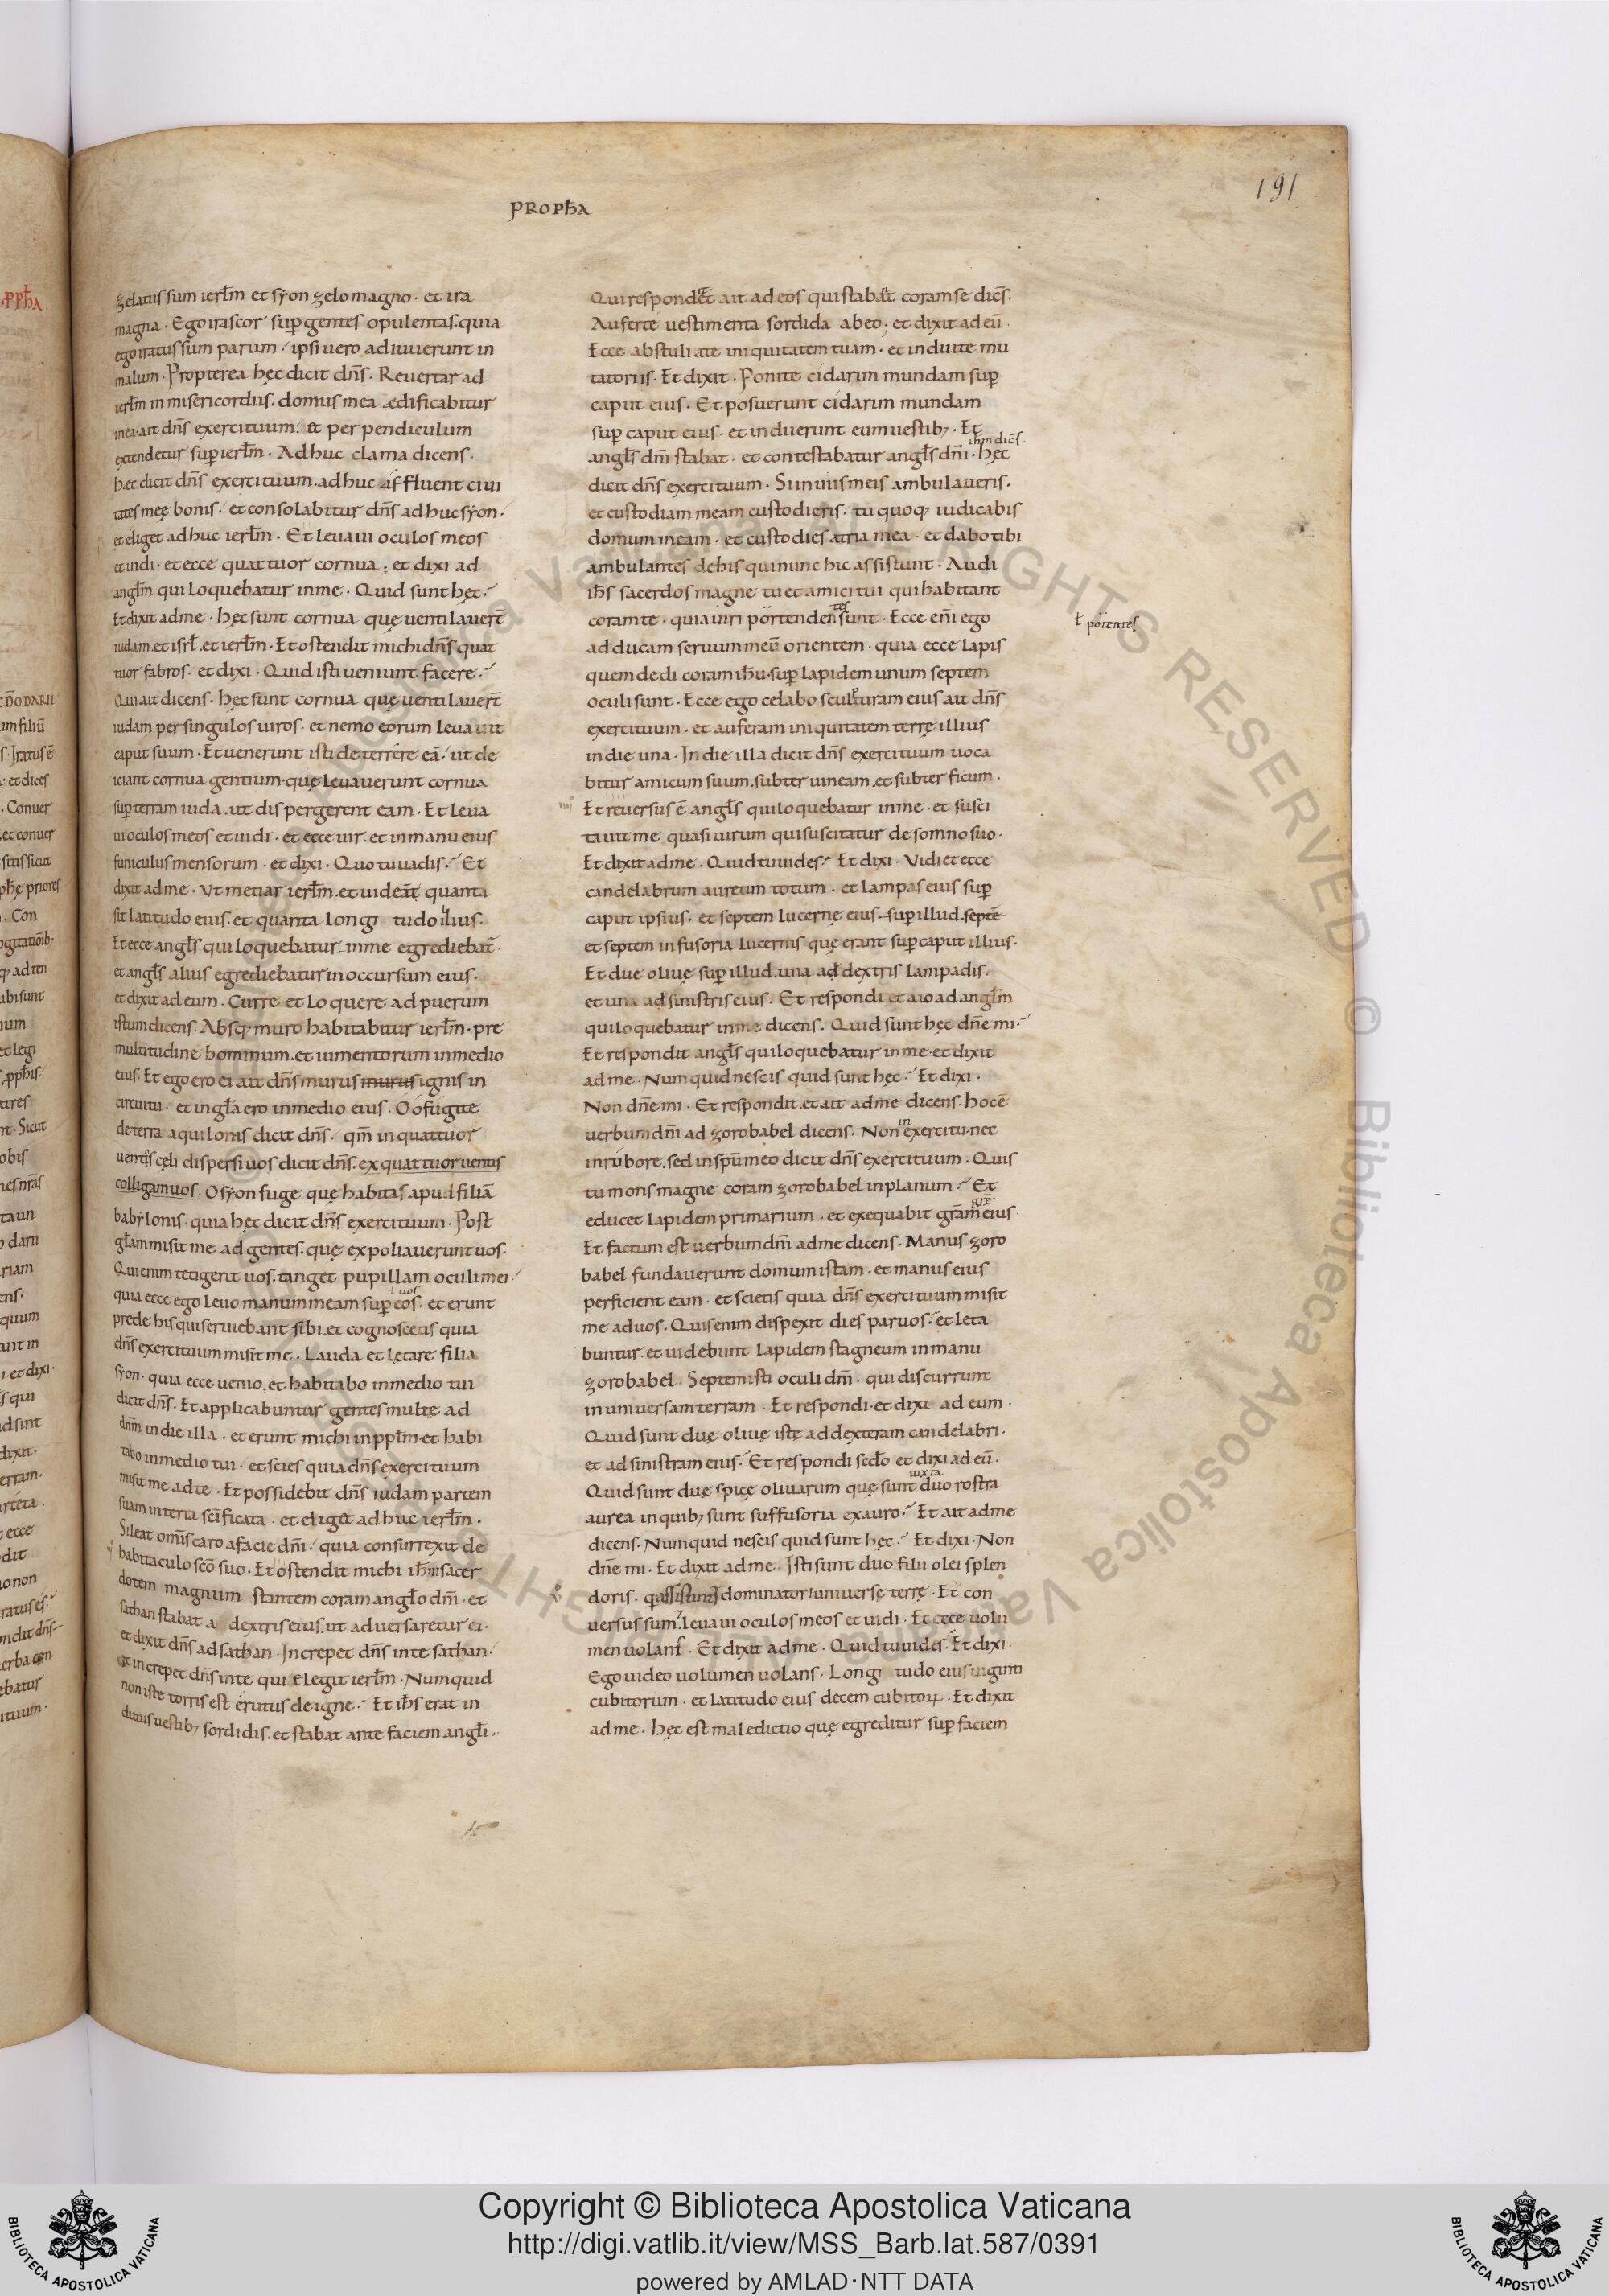 PROPHA
191
zelatus sum ierłm et syon zelo magno · et ira
magna · Ego irascor sup gentes opulentas · quia
ego iratus sum parum · ipsi uero adiuuerunt in
malum · Propterea hęc dicit dn̄s · Reuertar ad
ierłm in misericordiis · domus mea ædificabitur
inea · ait dn̄s exercituum · et per pendiculum
extendetur sup ierłm · Adhuc clama dicens ·
hæc dicit dn̄s exercituum · adhuc affluent ciui
tates meę bonis · et consolabitur dn̄s adhuc syon ·
et eliget adhuc ierłm · Et leuaui oculos meos
et uidi · et ecce quattuor cornua · et dixi ad
angłm qui loquebatur in me · Quid sunt hęc ·
Et dixit ad me · hęc sunt cornua quę uentilauer̄t
iudam · et isrł · et ierłm · Et ostendit michi dn̄s quat
tuor fabros · et dixi · Quid isti ueniunt facere ·
Qui ait dicens · hęc sunt cornua quę uentilauer̄t
iudam per singulos uiros · et nemo eorum leuauit
caput suum · Et uenerunt isti deterrere eā · ut de
iciant cornua gentium · quę leuauerunt cornua
sup terram iuda · ut dispergerent eam · Et leua
ui oculos meos et uidi · et ecce uir · et in manu eius
funiculus mensorum · et dixi · Quo tu uadis · Et
dixit ad me · Vt metiar ierłm · et uideā quanta
sit latitudo eius · et quanta longi tudo illius ·
Et ecce angłs qui loquebatur in me egrediebat̄ ·
et angłs alius egrediebatur in occursum eius ·
et dixit ad eum · Curre et loquere ad puerum
istum dicens · Absq; muro habitabitur ierłm · pre
multitudine hominum · et iumentorum in medio
eius · Et ego ero ei ait dn̄s murus murus ignis in
circuitu · et in głā ero in medio eius · O o fugite
de terra aquilonis dicit dn̄s · qm̄ in quattuor
uentos cęli dispersi uos dicit dn̄s · ex quattuor uentis
colligam uos · O syon fuge quę habitas apud filiā
babylonis · quia hęc dicit dn̄s exercituum · Post
głam misit me ad gentes · quę expoliauerunt uos ·
Qui enim tetigerit uos · tanget pupillam oculi mei ·
ł uos
quia ecce ego leuo manum meam sup eos · et erunt
prede his qui seruiebant sibi · et cognoscetis quia
dn̄s exercituum misit me · Lauda et lętare filia
syon · quia ecce uenio · et habitabo in medio tui
dicit dn̄s · Et applicabuntur gentes multę ad
dn̄m in die illa · et erunt michi in ppłm · et habi
tabo in medio tui · et scies quia dn̄s exercituum
misit me ad te · Et possidebit dn̄s iudam partem
suam in terra sc̄ificata · et eliget adhuc ierłm ·
Sileat om̄is caro a facie dn̄i · quia consurrexit de
habitaculo sc̄o suo · Et ostendit michi ih̄m sacer
dotem magnum stantem coram angło dn̄i · et
sathan stabat a dextris eius · ut aduersaretur ei ·
et dixit dn̄s ad sathan · Increpet dn̄s in te sathan ·
et increpet dn̄s in te qui elegit ierłm · Numquid
non iste torris est erutus de igne · Et ih̄s erat in
dutus uestib; sordidis · et stabat ante faciem angłi ·
Qui respondet ait ad eos qui stabant coram se dic̄s ·
Auferte uestimenta sordida ab eo · et dixit ad eū ·
Ecce abstuli a te iniquitatem tuam · et induite mu
tatoriis · Et dixit · Ponite cidarim mundam sup
caput eius · Et posuerunt cidarim mundam
sup caput eius · et induerunt eum uestib; · Et
ih̄m dic̄s ·
angłs dn̄i stabat · et contestabatur angłs dn̄i · hęc
dicit dn̄s exercituum · Si in uiis meis ambulaueris ·
et custodiam meam custodieris · tu quoq; iudicabis
domum meam · et custodies atria mea · et dabo tibi
ambulantes de his qui nunc hic assistunt · Audi
ih̄s sacerdos magne tu et amici tui qui habitant
coram te · quia uiri portendentes sunt · Ecce eni ego
ł potentes
adducam seruum meū orientem · quia ecce lapis
quem dedi coram ih̄u · sup lapidem unum septem
oculi sunt · Ecce ego celabo sculpturam eius ait dn̄s
exercituum · et auferam iniquitatem terrę illius
in die una · In die illa dicit dn̄s exercituum uoca
bitur amicum suum · subter uineam · et subter ficum ·
Et reuersus ē angłs qui loquebatur in me · et susci
tauit me quasi uirum qui suscitatur de somno suo ·
Et dixit ad me · Quid tu uides · Et dixi · Vidi et ecce
candelabrum aureum totum · et lampas eius sup
caput ipsius · et septem lucernę eius · sup illud · septē
et septem infusoria lucernis quę erant sup caput illius ·
Et due oliuę sup illud · una ad dextris lampadis ·
et una ad sinistris eius · Et respondi et aio ad angłm
qui loquebatur in me dicens · Quid sunt hęc dn̄e mi ·
Et respondit angłs qui loquebatur in me · et dixit
ad me · Numquid nescis quid sunt hęc · Et dixi ·
Non dn̄e mi · Et respondit · et ait ad me dicens · hoc ē
in
uerbum dn̄i ad zorobabel dicens · Non exercitu · nec
in robore · sed in spū meo dicit dn̄s exercituum · Quis
tu mons magne coram zorobabel in planum · Et
grē
educet lapidem primarium · et exequabit grām eius ·
Et factum est uerbum dn̄i ad me dicens · Manus zoro
babel fundauerunt domum istam · et manus eius
perficient eam · et scietis quia dn̄s exercituum misit
me ad uos · Quis enim dispexit dies paruos · et leta
buntur · et uidebunt lapidem stagneum in manu
zorobabel · Septem isti oculi dn̄i · qui discurrunt
in uniuersam terram · Et respondi · et dixi ad eum ·
Quid sunt due oliuę iste ad dexteram candelabri ·
et ad sinistram eius · Et respondi scd̄o et dixi ad eū ·
iuxta
Quid sunt duę spicę oliuarum quę sunt duo rostra
aurea in quib; sunt suffusoria ex auro · Et ait ad me
dicens · Numquid nescis quid sunt hęc · Et dixi · Non
dn̄e mi · Et dixit ad me · Isti sunt duo filii olei splen
doris · q assistunt dominatori uniuerse terrę · Et con
uersus sum · leuaui oculos meos et uidi · Et ecce uolu
men uolans · Et dixit ad me · Quid tu uides · Et dixi ·
Ego uideo uolumen uolans · Longi tudo eius uiginti
cubitorum · et latitudo eius decem cubitoꝝ · Et dixit
ad me · hęc est maledictio quę egreditur sup faciem
Copyright © Biblioteca Apostolica Vaticana
http://digi.vatlib.it/view/MSS_Barb.lat.587/0391
powered by AMLAD · NTT DATA
BIBLIOTECA APOSTOLICA VATICANA
BIBLIOTECA APOSTOLICA VATICANA